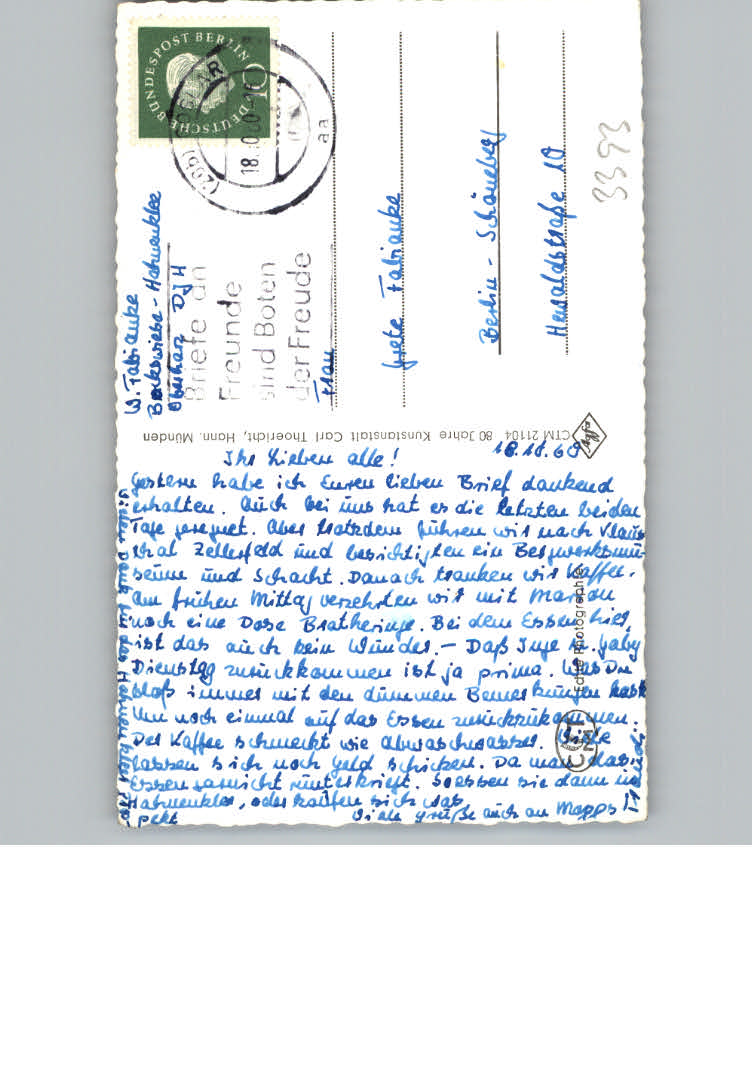 Ihr Lieben alle!
18.10.60
Gestern habe ich Euren lieben Brief dankend
erhalten. Auch bei uns hat es die letzten beiden
Tage geregnet. Aber trotzdem führen wir nach Klaus
thal Zellerfeld und besichtigten ein Bergwerksmu-
seum und Schacht. Danach tranken wir Kaffee.
Am frühen Mittag verzehrten wir mit Marion
noch eine Dose Bratheringe. Bei dem Essen hier,
ist das auch kein Wunder. – Daß Inge u. Gaby
Dienstag zurückkommen ist ja prima. Was Du
bloß immer mit den dummen Bemerkungen hast
Um noch einmal auf das Essen zurückzukommen.
Der Kaffee schmeckt wie Abwaschwasser. Viele
lassen sich noch Geld schicken. Da man das
Essen garnicht runterkriegt. So essen sie dann in
Hahnenklee, oder kaufen sich was
Viele Grüße auch an Mopps
Vielen Dank für das Hahnenklee Pro-
pekt
W. Fabianke
Bockswiese-Hahnenklee
Oberharz DJH
Frau
Grete Fabianke
Berlin - Schöneberg
Hewaldstraße 10
3393
DEUTSCHE BUNDESPOST BERLIN
10
(20b) GOSLAR
18.10.60
aa
Briefe an
Freunde
sind Boten
der Freude
CTM 21104 80 Jahre Kunstanstalt Carl Thoericht, Hann. Münden
Agfa
Echte Photographie
CTM